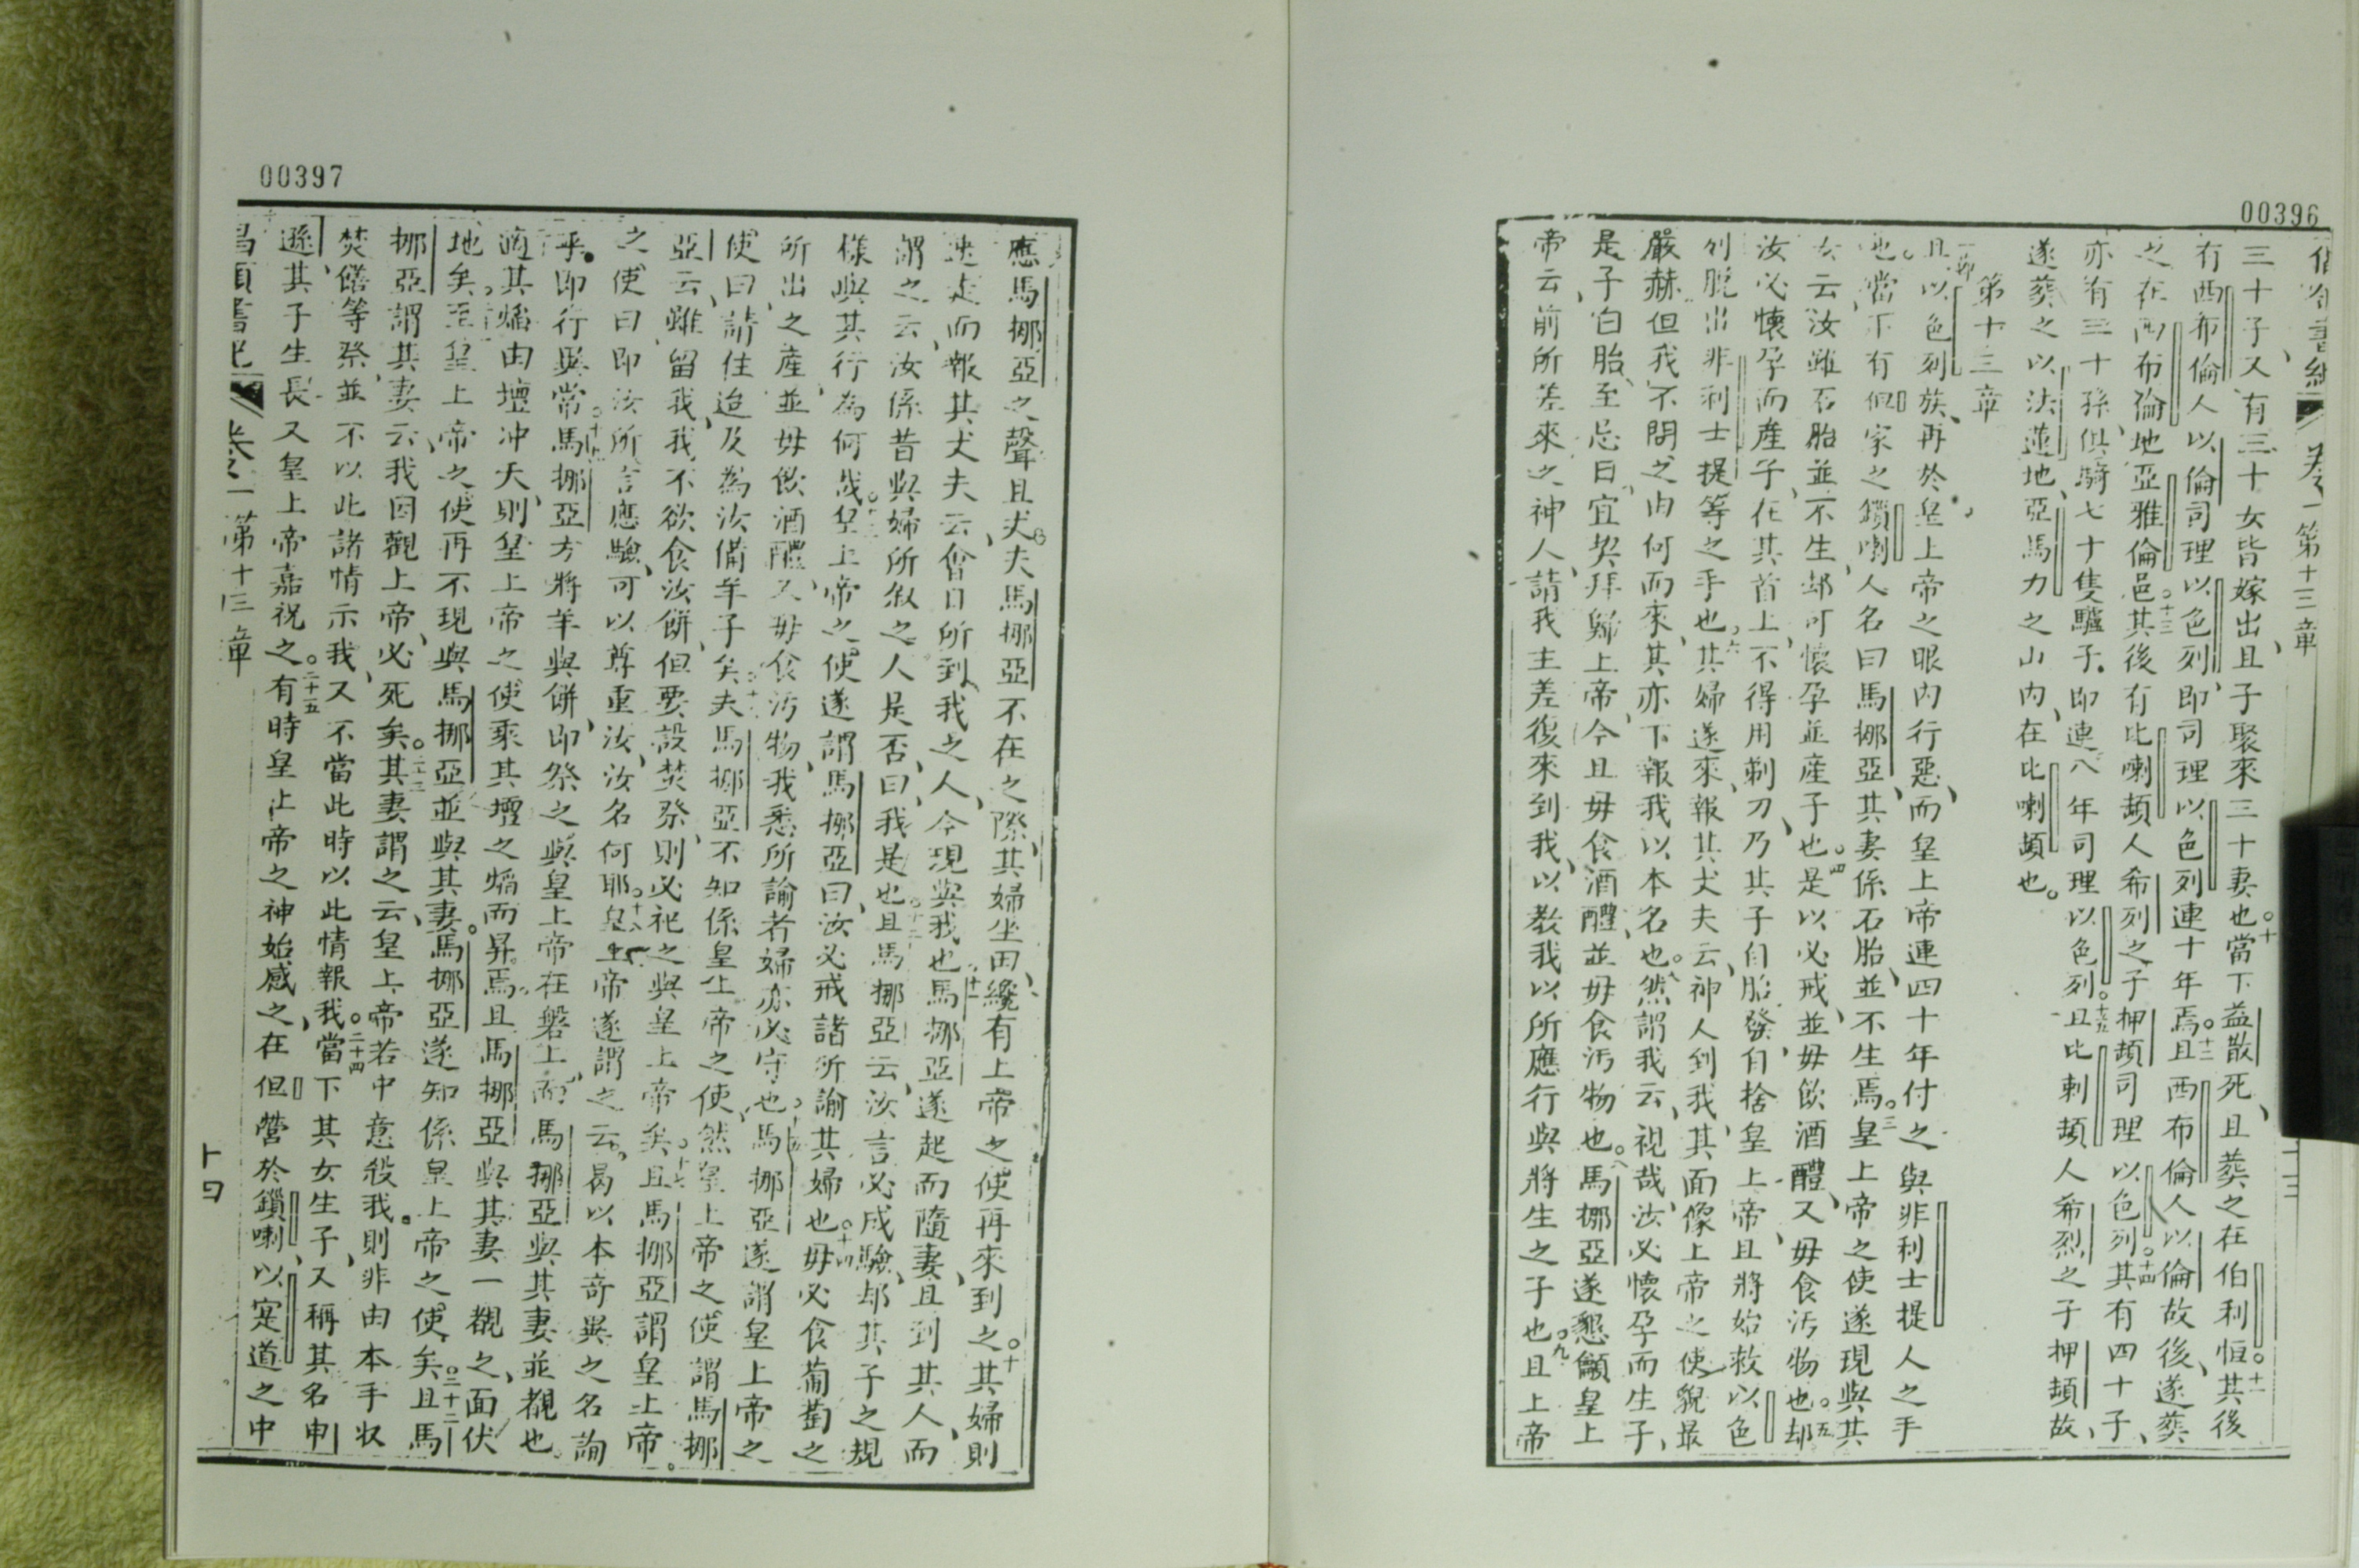 00396
第十三章
三十子、又有三十女皆嫁出、且子聚來三十妻也。十當下益散死、且葬之在伯利恒。十一其後
有西布倫人以倫司理以色列、即司理以色列連十年焉。十二且西布倫人以倫故後、遂葬
之在西布倫地亞雅倫邑。十三其後有比喇頓人希列之子押頓司理以色列。十四其有四十子、
亦有三十孫、俱騎七十隻驢子。即連八年司理以色列。十五且比剌頓人希烈之子押頓故、
遂葬之以法蓮地、亞馬力之山內、在比喇頓也。
第十三章
且以色列族、再於皇上帝之眼內行惡、而皇上帝連四十年付之與非利士提人之手
也。當下有但家之鎖喇人名曰馬挪亞、其妻係石胎、並不生焉。三皇上帝之使遂現與其
女云、汝雖石胎並不生、却可懷孕並產子也。四是以必戒、並毋飲酒醴、又毋食污物也。五却
汝必懷孕而產子、在其首上、不得用剃刀、乃其子自胎發、自捨皇上帝、且將始救以色
列脫出非利士提等之手也。六其婦遂來、報其丈夫云、神人到我、其面像上帝之使貌最
嚴赫、但我不問之由何而來、其亦不報我以本名也。然謂我云、視哉、汝必懷孕而生子、
是子自胎、至忌日、宜契拜歸上帝、今且毋食酒醴、並毋食污物也。八馬挪亞遂懇籲皇上
帝云、前所差來之神人、請我主差復來到我、以教我以所應行與將生之子也。九且上帝
00397
應馬挪亞之聲、且丈夫馬挪亞不在之際、其婦坐田、纔有上帝之使再來到之。十其婦則
速走而報其丈夫云、當日所到我之人、今現與我也。十一馬挪亞遂起而隨妻、且到其人、而
謂之云、汝係昔與婦所敘之人是否、曰、我是也。十二且馬挪亞云、汝言必成驗、却其子之規
樣與其行為何哉。十三皇上帝之使遂謂馬挪亞曰、汝必戒諸所諭其婦也。十四毋必食葡萄之
所出之產、並毋飲酒醴、又毋食污物、我悉所諭者婦亦必守也。十五馬挪亞遂謂皇上帝之
使曰、請住迨及為汝備羊子矣。十六夫馬挪亞不知係皇上帝之使、然皇上帝之使謂馬挪
亞云、雖留我、我不欲食汝餅、但要設焚祭、則必祀之與皇上帝矣。十七且馬挪亞謂皇上帝
之使曰、即汝所言應驗、可以尊重汝、汝名何耶。十八皇上帝遂謂之云、曷以本奇異之名詢
乎。即行與常。十九馬挪亞方將羊與餅、即祭之與皇上帝在磐上、而馬挪亞與其妻並觀也。
適其焰由壇沖天、則皇上帝之使乘其壇之焰而昇焉、且馬挪亞與其妻一觀之、面伏
地矣。至皇上帝之使再不現與馬挪亞並與其妻。馬挪亞遂知係皇上帝之使矣。二十二且馬
挪亞謂其妻云、我因觀上帝、必死矣。二十三其妻謂之云、皇上帝若中意殺我、則非由本手收
焚饍等祭、並不以此諸情示我、又不當此時以此情報我。二十四當下其女生子、又稱其名申
遜、其子生長、又皇上帝嘉祝之。二十五有時皇上帝之神始感之、在但營於鎖喇、以寔道之中
卷之一第十三章
十四